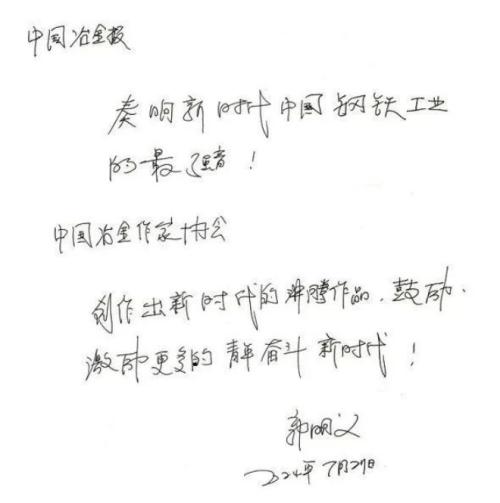 中国冶金报
奏响新时代中国钢铁工业
的最强音！
中国冶金作家协会
创作出新时代的沸腾作品，鼓励、
激励更多的青年奋斗新时代！
郭明义
2024年7月27日